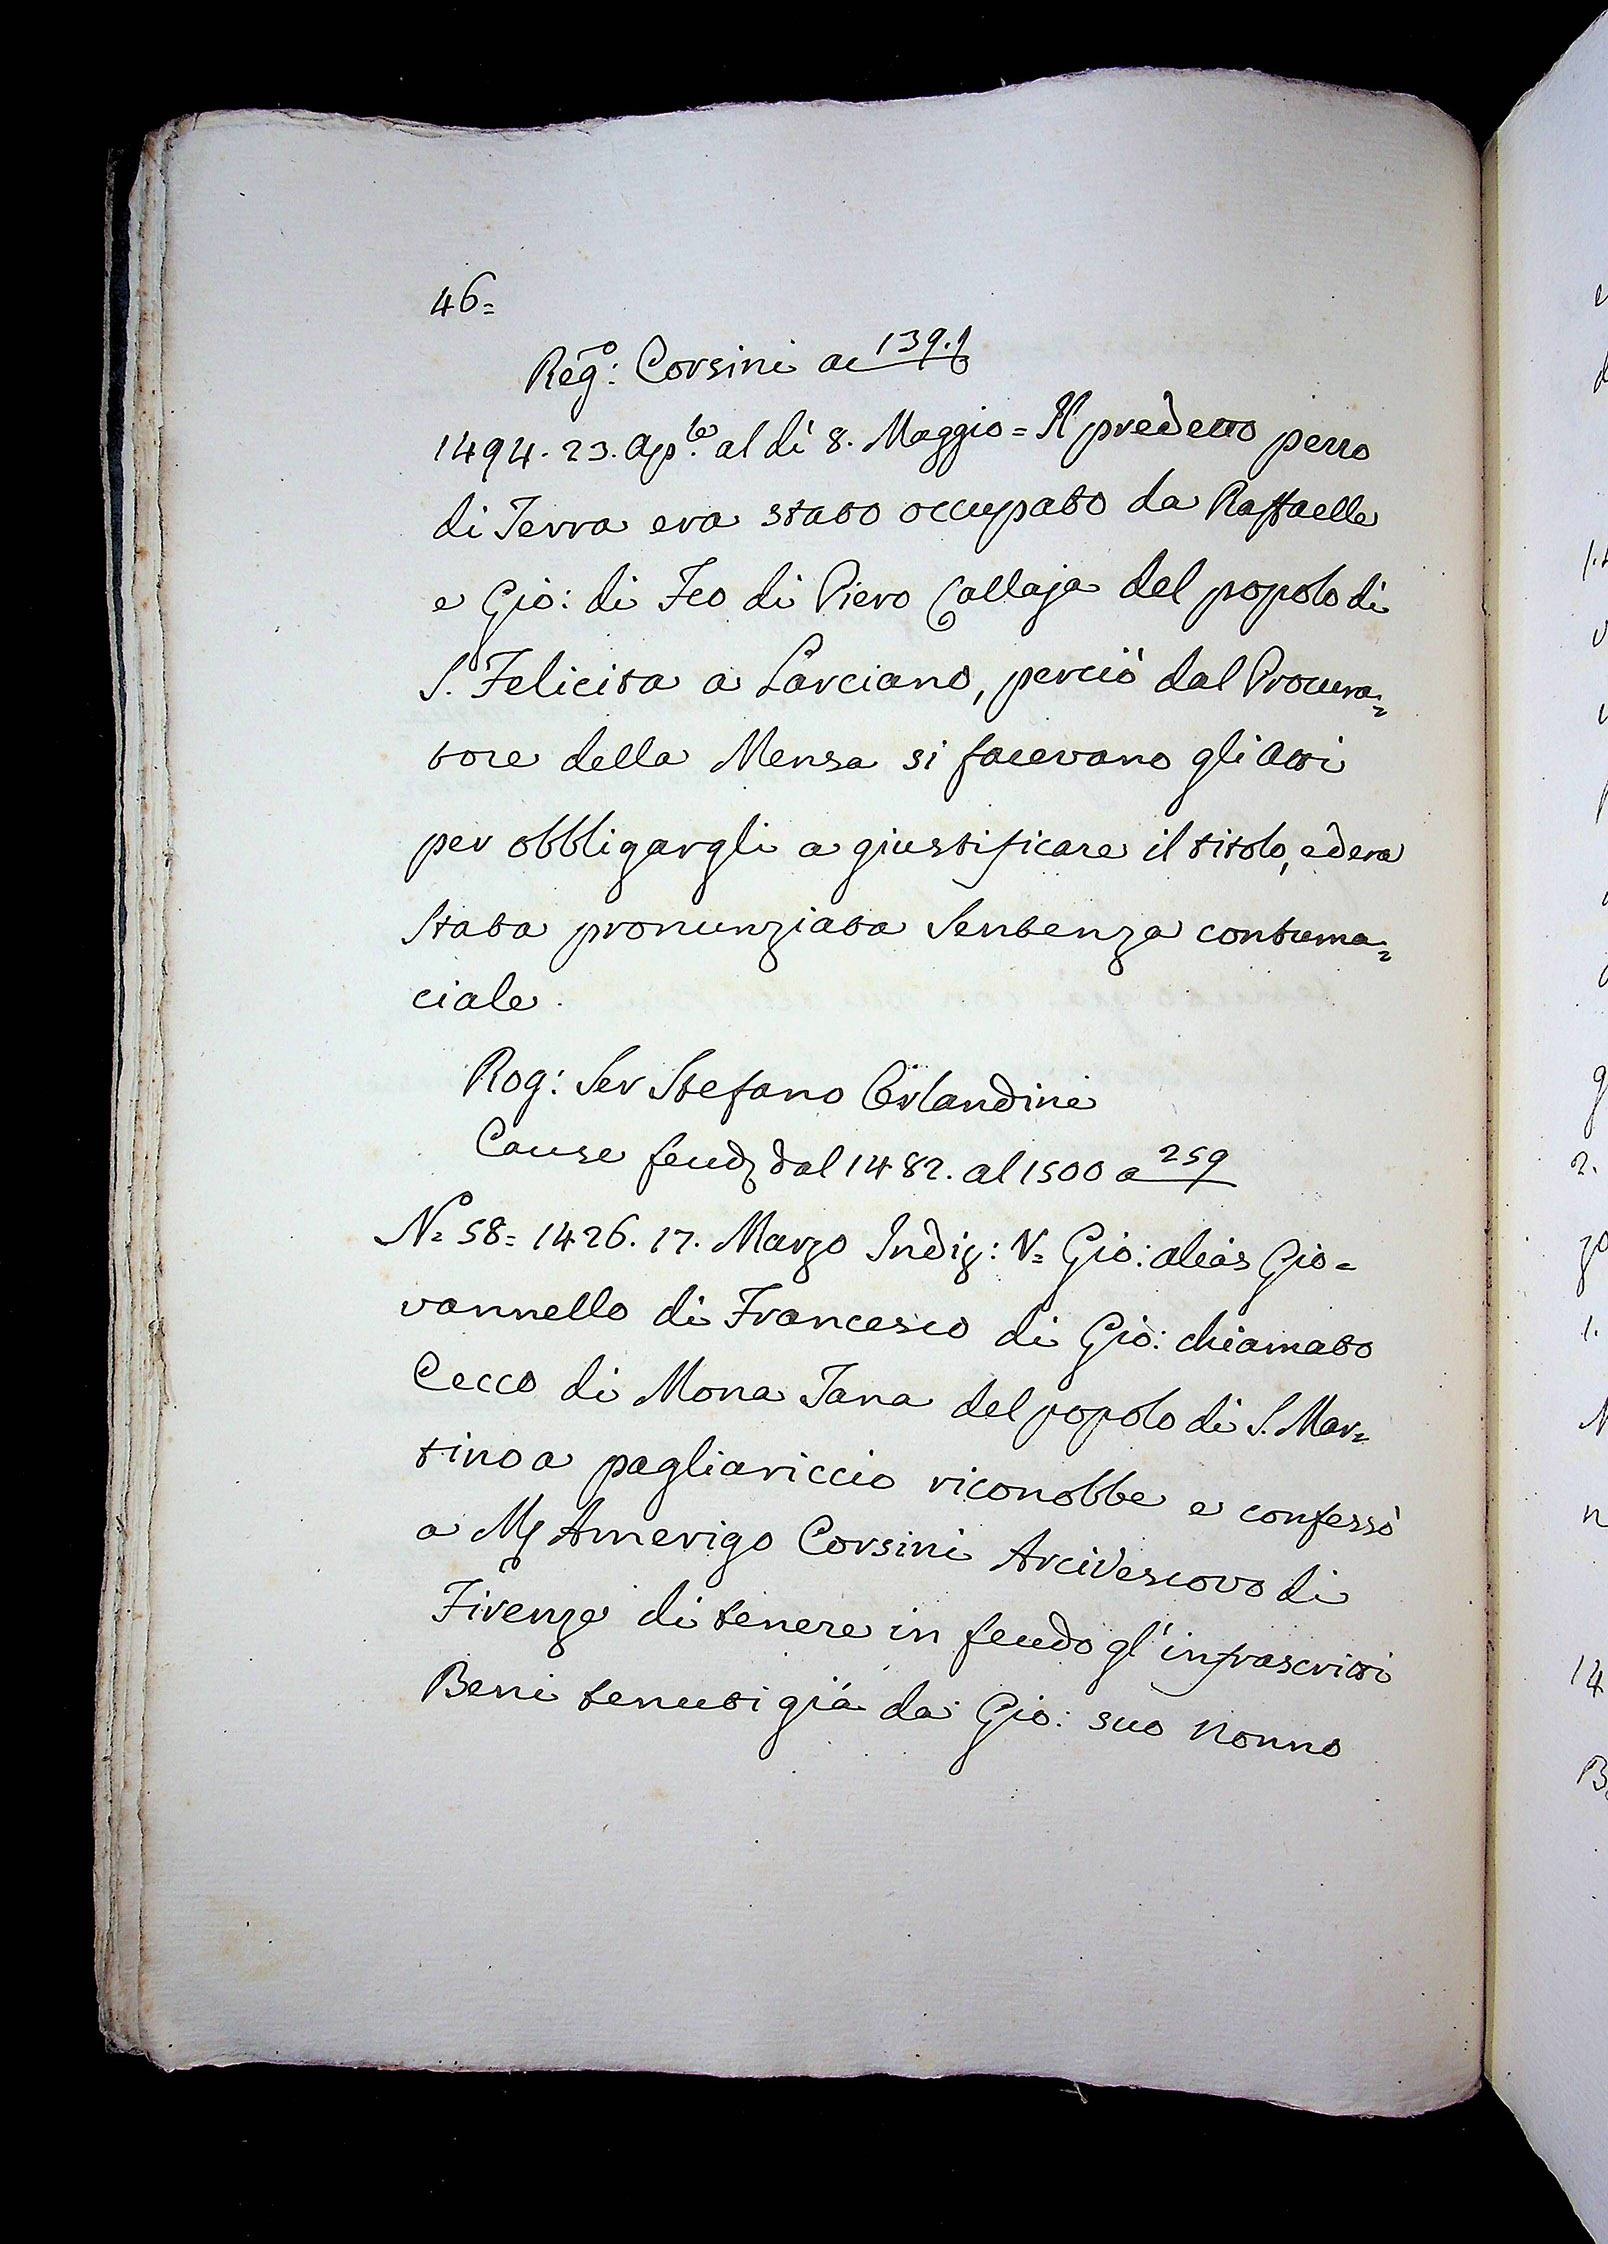 46=
Reg.o: Corsini a 139.
1494. 23. Ap.le al dì 8. Maggio = Il predetto pezzo
di Terra era stato occupato da Raffaelle
e Gio: di Feo di Piero Callaja del popolo di
S. Felicita a Larciano, perciò dal Procura=
tore della Mensa si facevano gli Atti
per obbligargli a giustificare il titolo, ed era
stata pronunziata Sentenza contuma=
ciale.
Rog: Ser Stefano Orlandini
Cause feud. dal 1482. al 1500 a 259
N.o 58= 1426. 17. Marzo Indiz: V= Gio: alias Gio=
vannello di Francesco di Gio: chiamato
Cecco di Mona Tana del popolo di S. Mar=
tino a pagliariccio riconobbe e confessò
a Mg Amerigo Corsini Arcivescovo di
Firenze di tenere in feudo gl'infrascritti
Beni tenuti già da Gio: suo Nonno